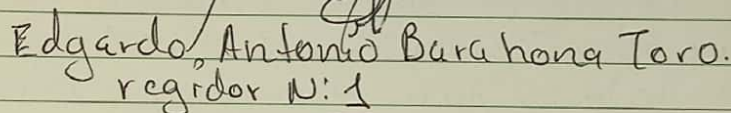 Edgardo Antonio Barahona Toro.
regidor N: 1